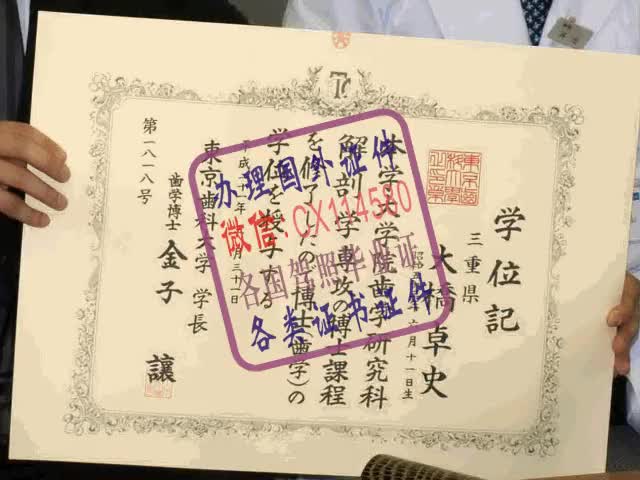 学位記
三重県
大橋卓史
年六月十一日生
本学大学院歯学研究科
解剖学専攻の博士課程
を修了したので博士(歯学)の
学位を授与する
平成
月三十一日
東京歯科大学 学長
歯学博士 金子 譲
第一八一八号
办理国外证件
微信:CX114580
各国驾照毕业证
各类证书证件